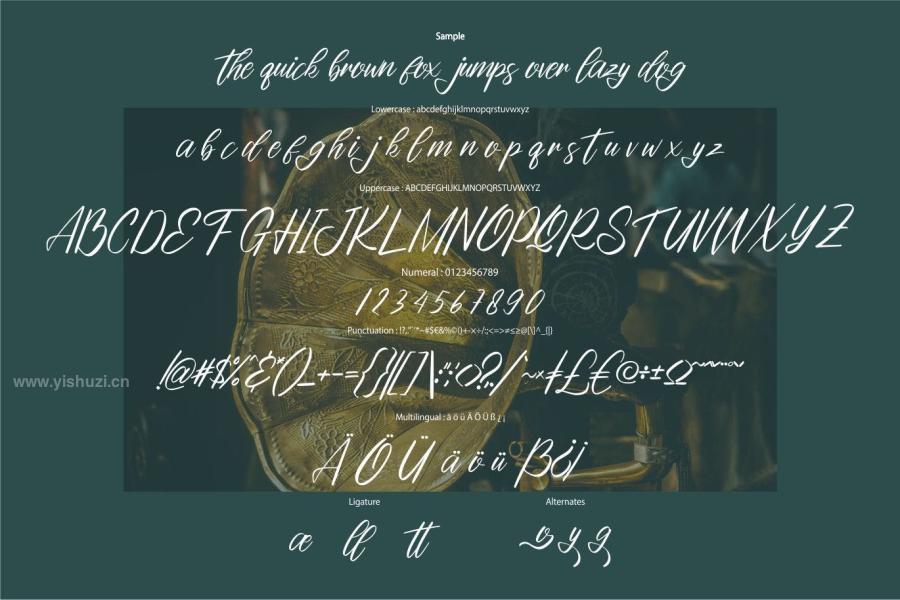 Sample
the quick brown fox jumps over lazy dog
Lowercase : abcdefghijklmnopqrstuvwxyz
a b c d e f g h i j k l m n o p q r s t u v w x y z
Uppercase : ABCDEFGHIJKLMNOPQRSTUVWXYZ
ABCDEFGHIJKLMNOPQRSTUVWXYZ
Numeral : 0123456789
1234567890
Punctuation :
www.yishuzi.cn
Multilingual : ä ö ü Ä Ö Ü ß ¿ ¡
Ä Ö Ü ä ö ü ß¿¡
Ligature Alternates
æ ll tt y g